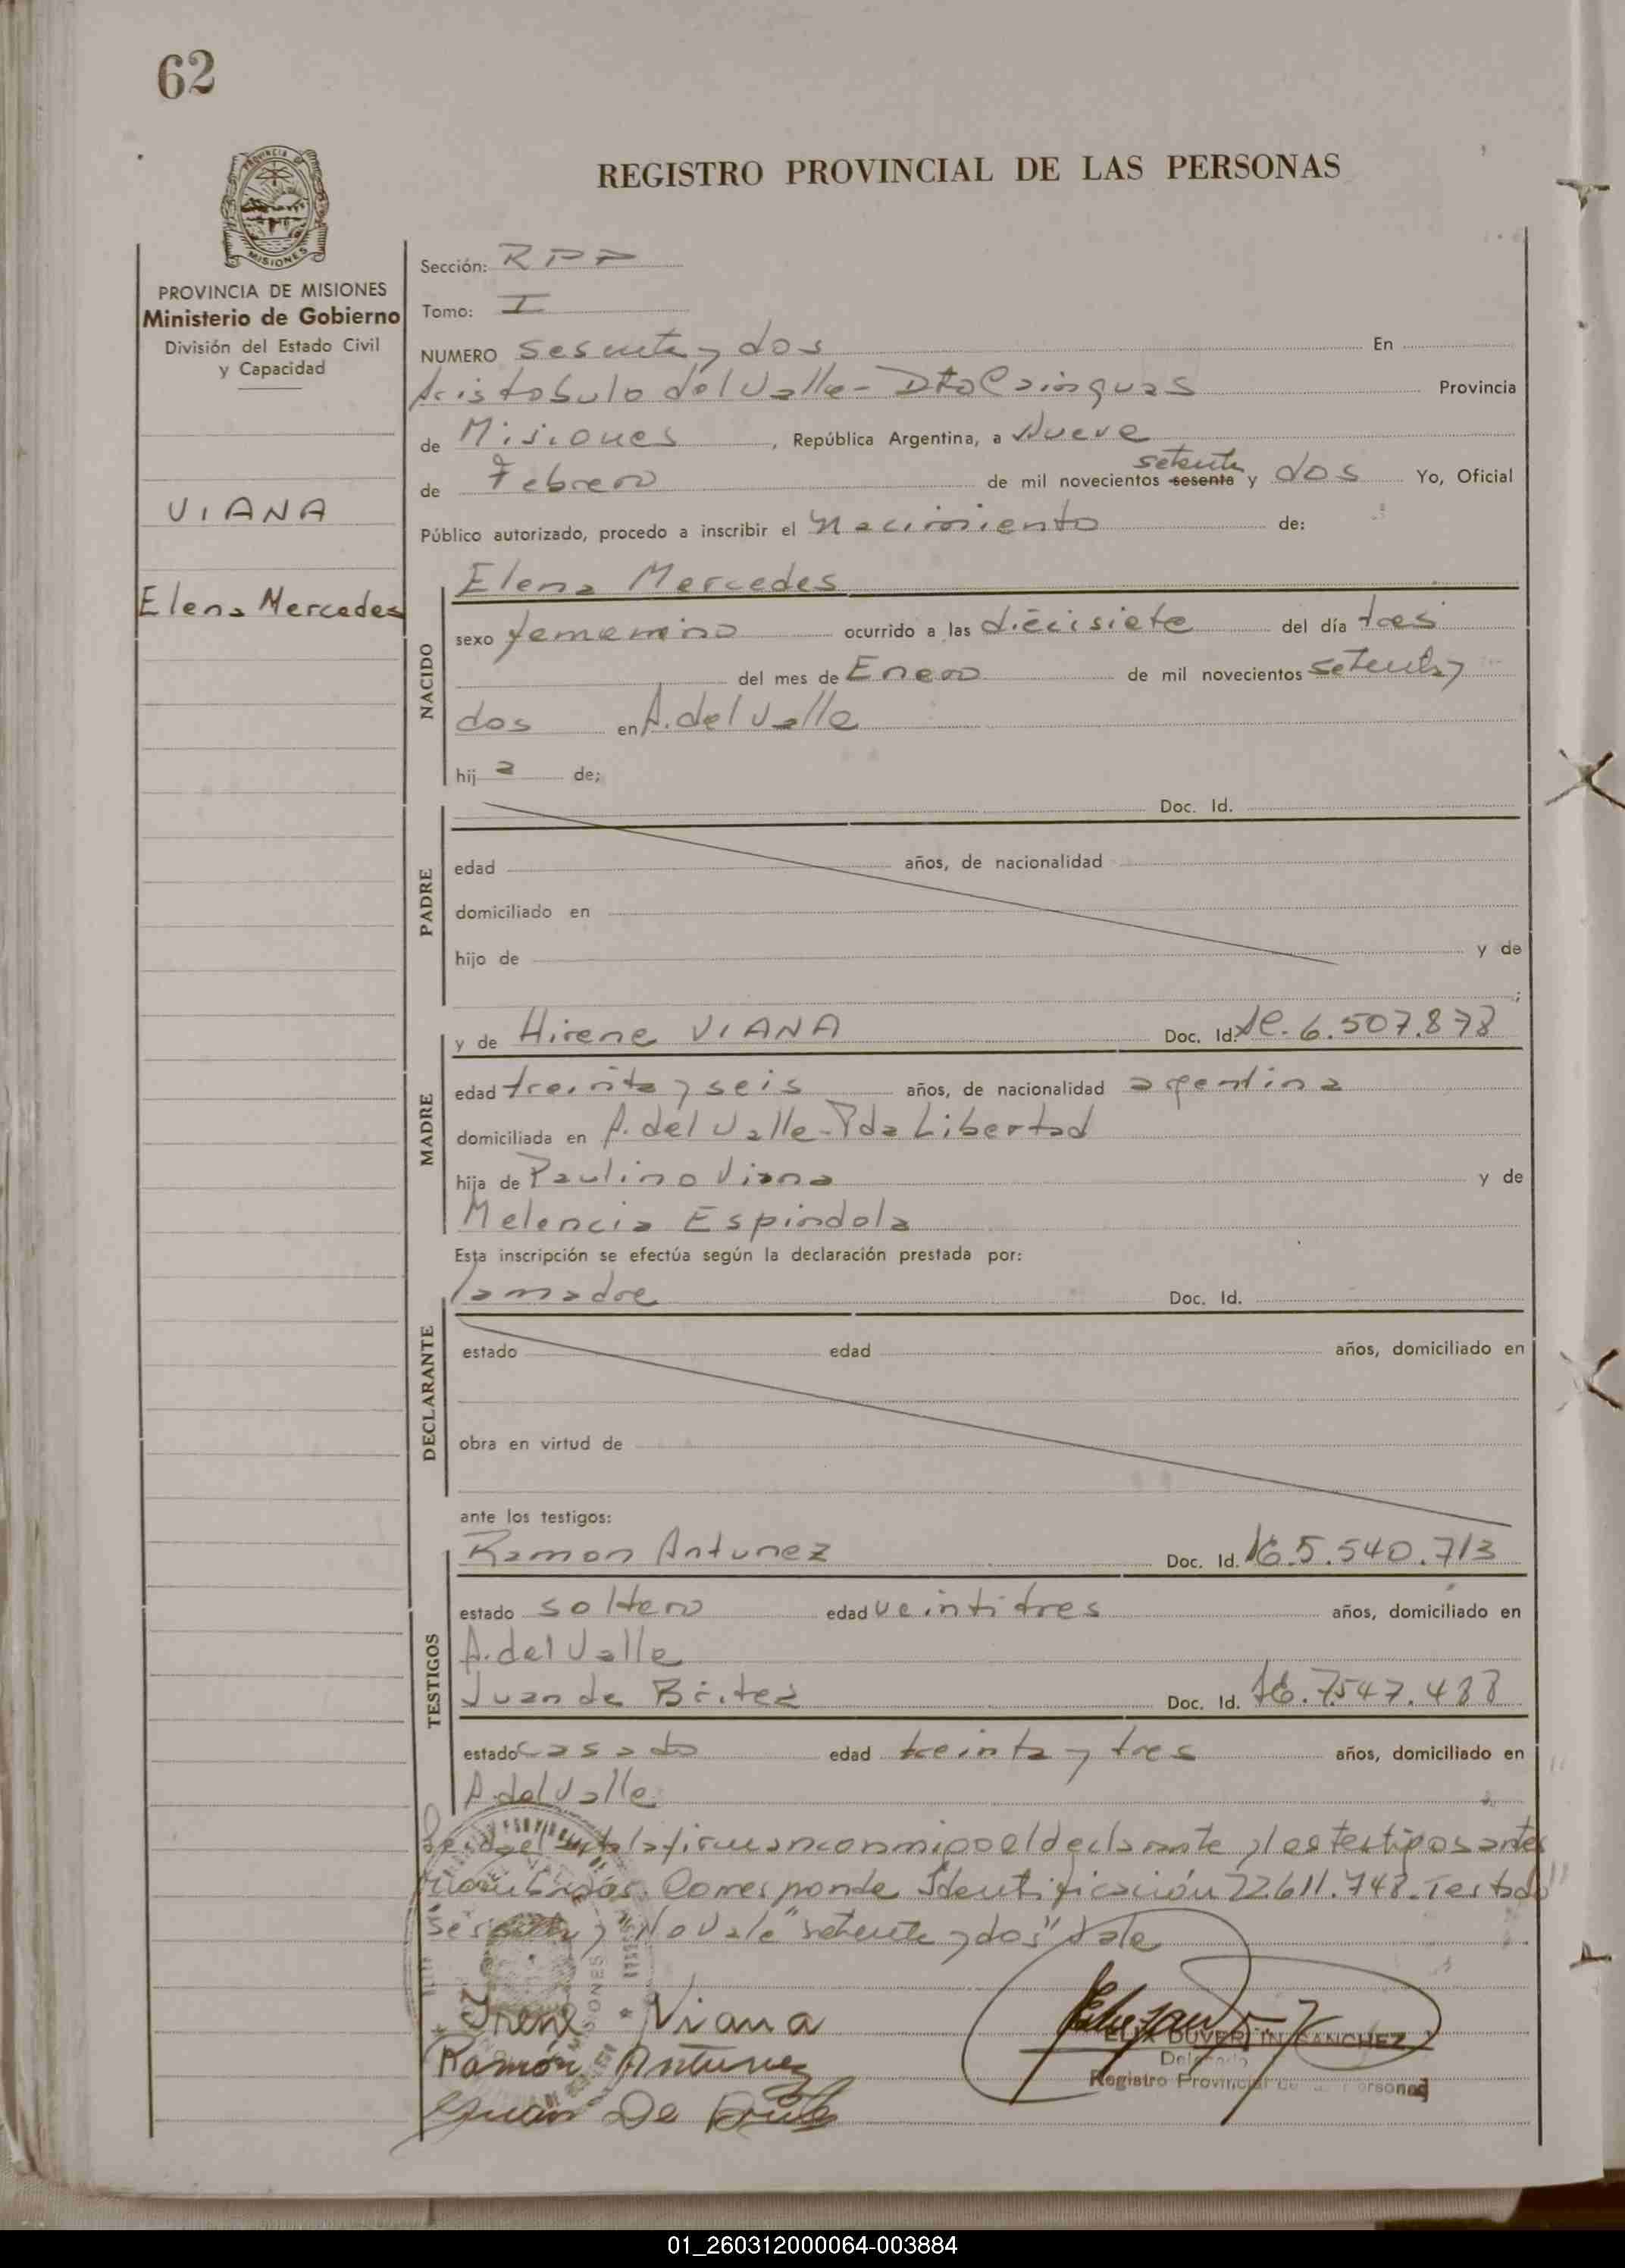 62
PROVINCIA DE
MISIONES
REGISTRO PROVINCIAL DE LAS PERSONAS
PROVINCIA DE MISIONES
Ministerio de Gobierno
División del Estado Civil
y Capacidad
VIANA
Elena Mercedes
Sección: RPP
Tomo: I
NUMERO sesenta y dos En
Aristobulo del Valle - Dto Cainguas Provincia
de Misiones, República Argentina, a Nueve
setenta
de Febrero de mil novecientos sesenta y dos Yo, Oficial
Público autorizado, procedo a inscribir el Nacimiento de:
NACIDO
Elena Mercedes
sexo femenino ocurrido a las diecisiete del día tres
del mes de Enero de mil novecientos setenta y
dos en A. del Valle
hij a de;
PADRE
Doc. Id.
edad años, de nacionalidad
domiciliado en
hijo de y de
;
MADRE
y de Hirene VIANA Doc. Id. 6.507.878
edad treinta y seis años, de nacionalidad argentina
domiciliada en A. del Valle - Pda Libertad
hija de Paulino Viana y de
Melencia Espindola
Esta inscripción se efectúa según la declaración prestada por:
DECLARANTE
la madre Doc. Id.
estado edad años, domiciliado en
obra en virtud de
ante los testigos:
TESTIGOS
Ramon Antunez Doc. Id. 5.540.713
estado soltero edad veintitres años, domiciliado en
A. del Valle
Juan de Britez Doc. Id. 7.547.488
estado casado edad treinta y tres años, domiciliado en
A. del Valle
el acta la firman conmigo el declarante y los testigos antes
Corresponde Identificación 22.611.748. Testado
y No vale "setenta y dos" Vale
Irene Viana
Ramón Antunez
Juan De
DUVER SANCHEZ
Registro Provincial
01_260312000064-003884